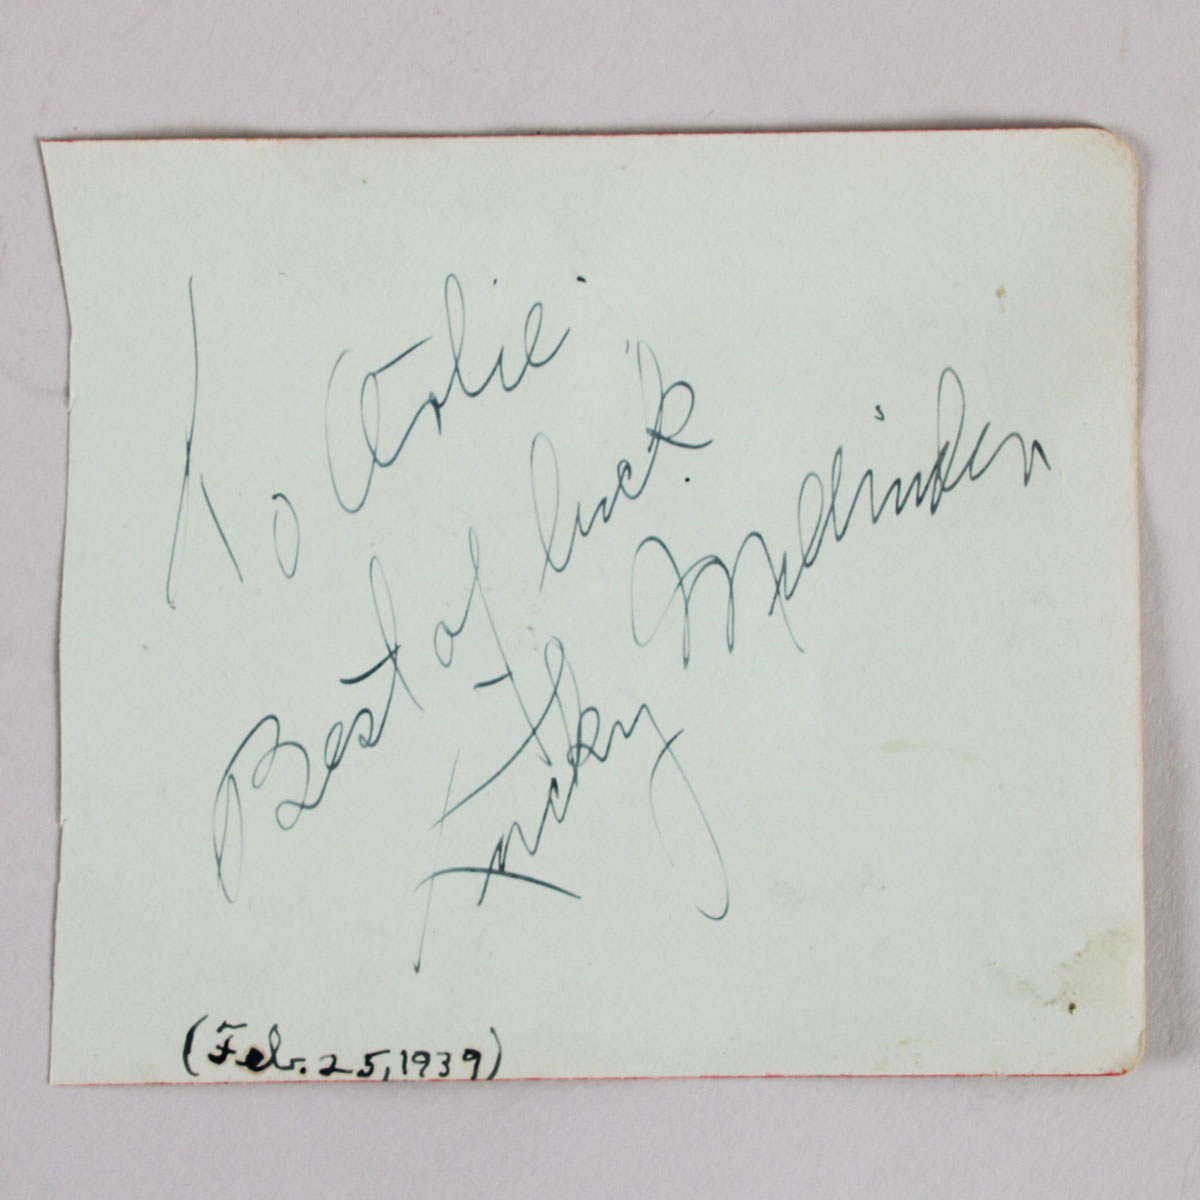 To Arlie
Best of luck
Lucky Millinder
(Feb. 25, 1939)